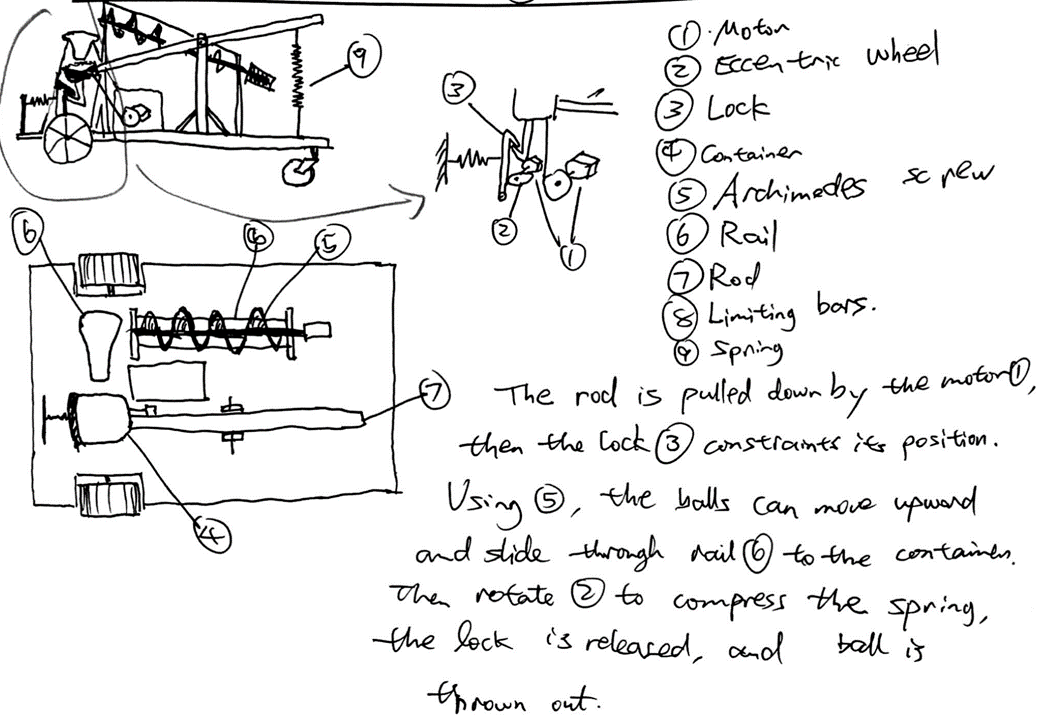 ① Motor
② Eccentric wheel
③ Lock
④ Container
⑤ Archimedes screw
⑥ Rail
⑦ Rod
⑧ Limiting bars.
⑨ Spring
⑨
③
②
①
⑥
⑧
⑤
⑦
④
The rod is pulled down by the motor ①,
then the lock ③ constraints its position.
Using ⑤, the balls can move upward
and slide through rail ⑥ to the container.
Then rotate ② to compress the spring,
the lock is released, and ball is
thrown out.